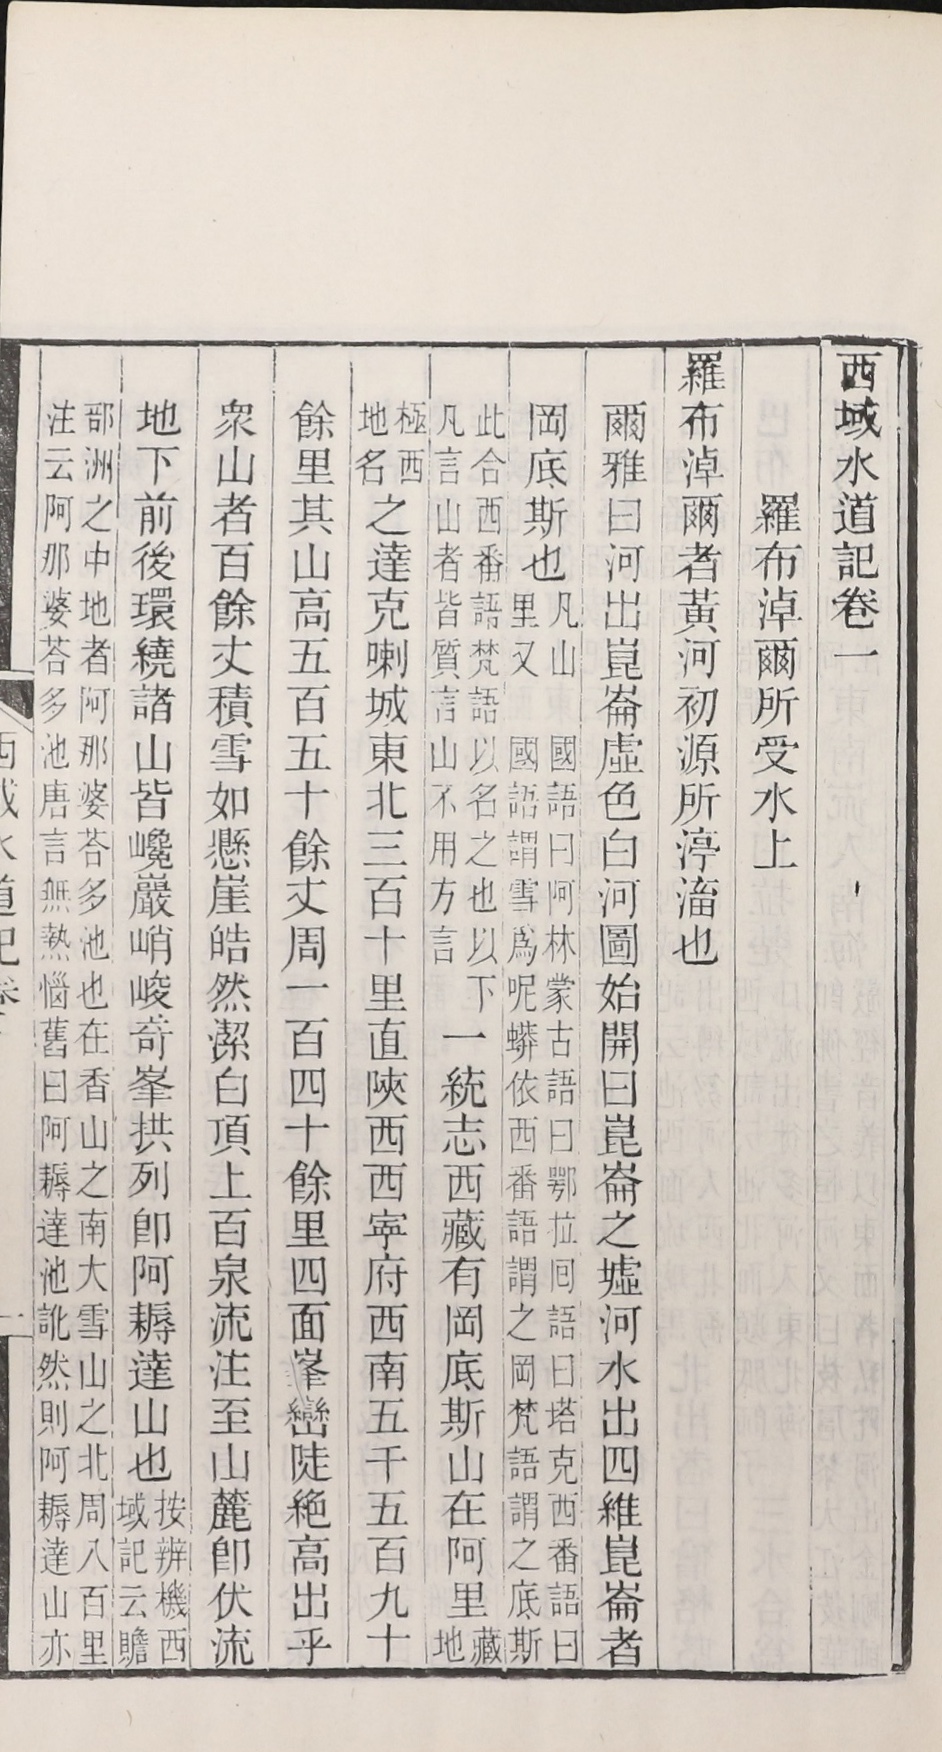 西域水道記卷一
羅布淖爾所受水上
羅布淖爾者黃河初源所渟滀也
爾雅曰河出崑崙虛色白河圖始開曰崑崙之墟河水出四維崑崙者
岡底斯也凡山 國語曰阿林蒙古語曰鄂拉回語曰塔克西番語曰
里又 國語謂雪爲呢蟒依西番語謂之岡梵語謂之底斯
此合西番語梵語以名之也以下
凡言山者皆質言山不用方言
一統志西藏有岡底斯山在阿里藏地
極西地名之達克喇城東北三百十里直陝西西寧府西南五千五百九十
餘里其山高五百五十餘丈周一百四十餘里四面峯巒陡絶高出乎
衆山者百餘丈積雪如懸崖皓然潔白頂上百泉流注至山麓卽伏流
地下前後環繞諸山皆巉巖峭峻奇峯拱列卽阿耨達山也按辨機西
域記云贍
部洲之中地者阿那婆荅多池也在香山之南大雪山之北周八百里
注云阿那婆荅多池唐言無熱惱舊曰阿耨達池訛然則阿耨達山亦
西域水道記卷一
一